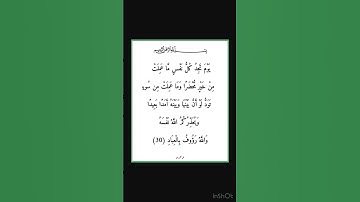 يَوْمَ تَجِدُ كُلُّ نَفْسٍ مَّا عَمِلَتْ
مِنْ خَيْرٍ مُّحْضَرًا وَمَا عَمِلَتْ مِن سُوءٍ
تَوَدُّ لَوْ أَنَّ بَيْنَهَا وَبَيْنَهُ أَمَدًا بَعِيدًا
وَيُحَذِّرُكُمُ اللَّهُ نَفْسَهُ
وَاللَّهُ رَؤُوفٌ بِالْعِبَادِ (30)
InShOt